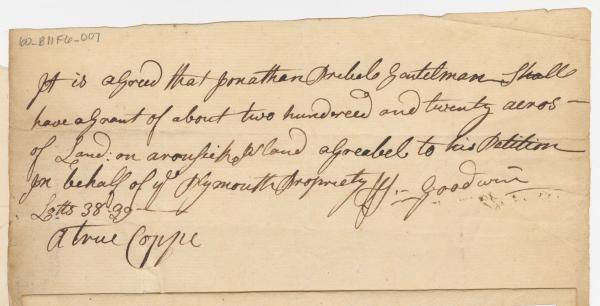 60-B11F6-007
It is agreed that Jonathan Preble Gentelman Shall
have a Grant of about two hundreed and twenty acros
of Land: on arousik Island agreabel to his Petition
In behalf of ye Plymouth Propriety Goodwin
Lotts 38-39
A true Coppe